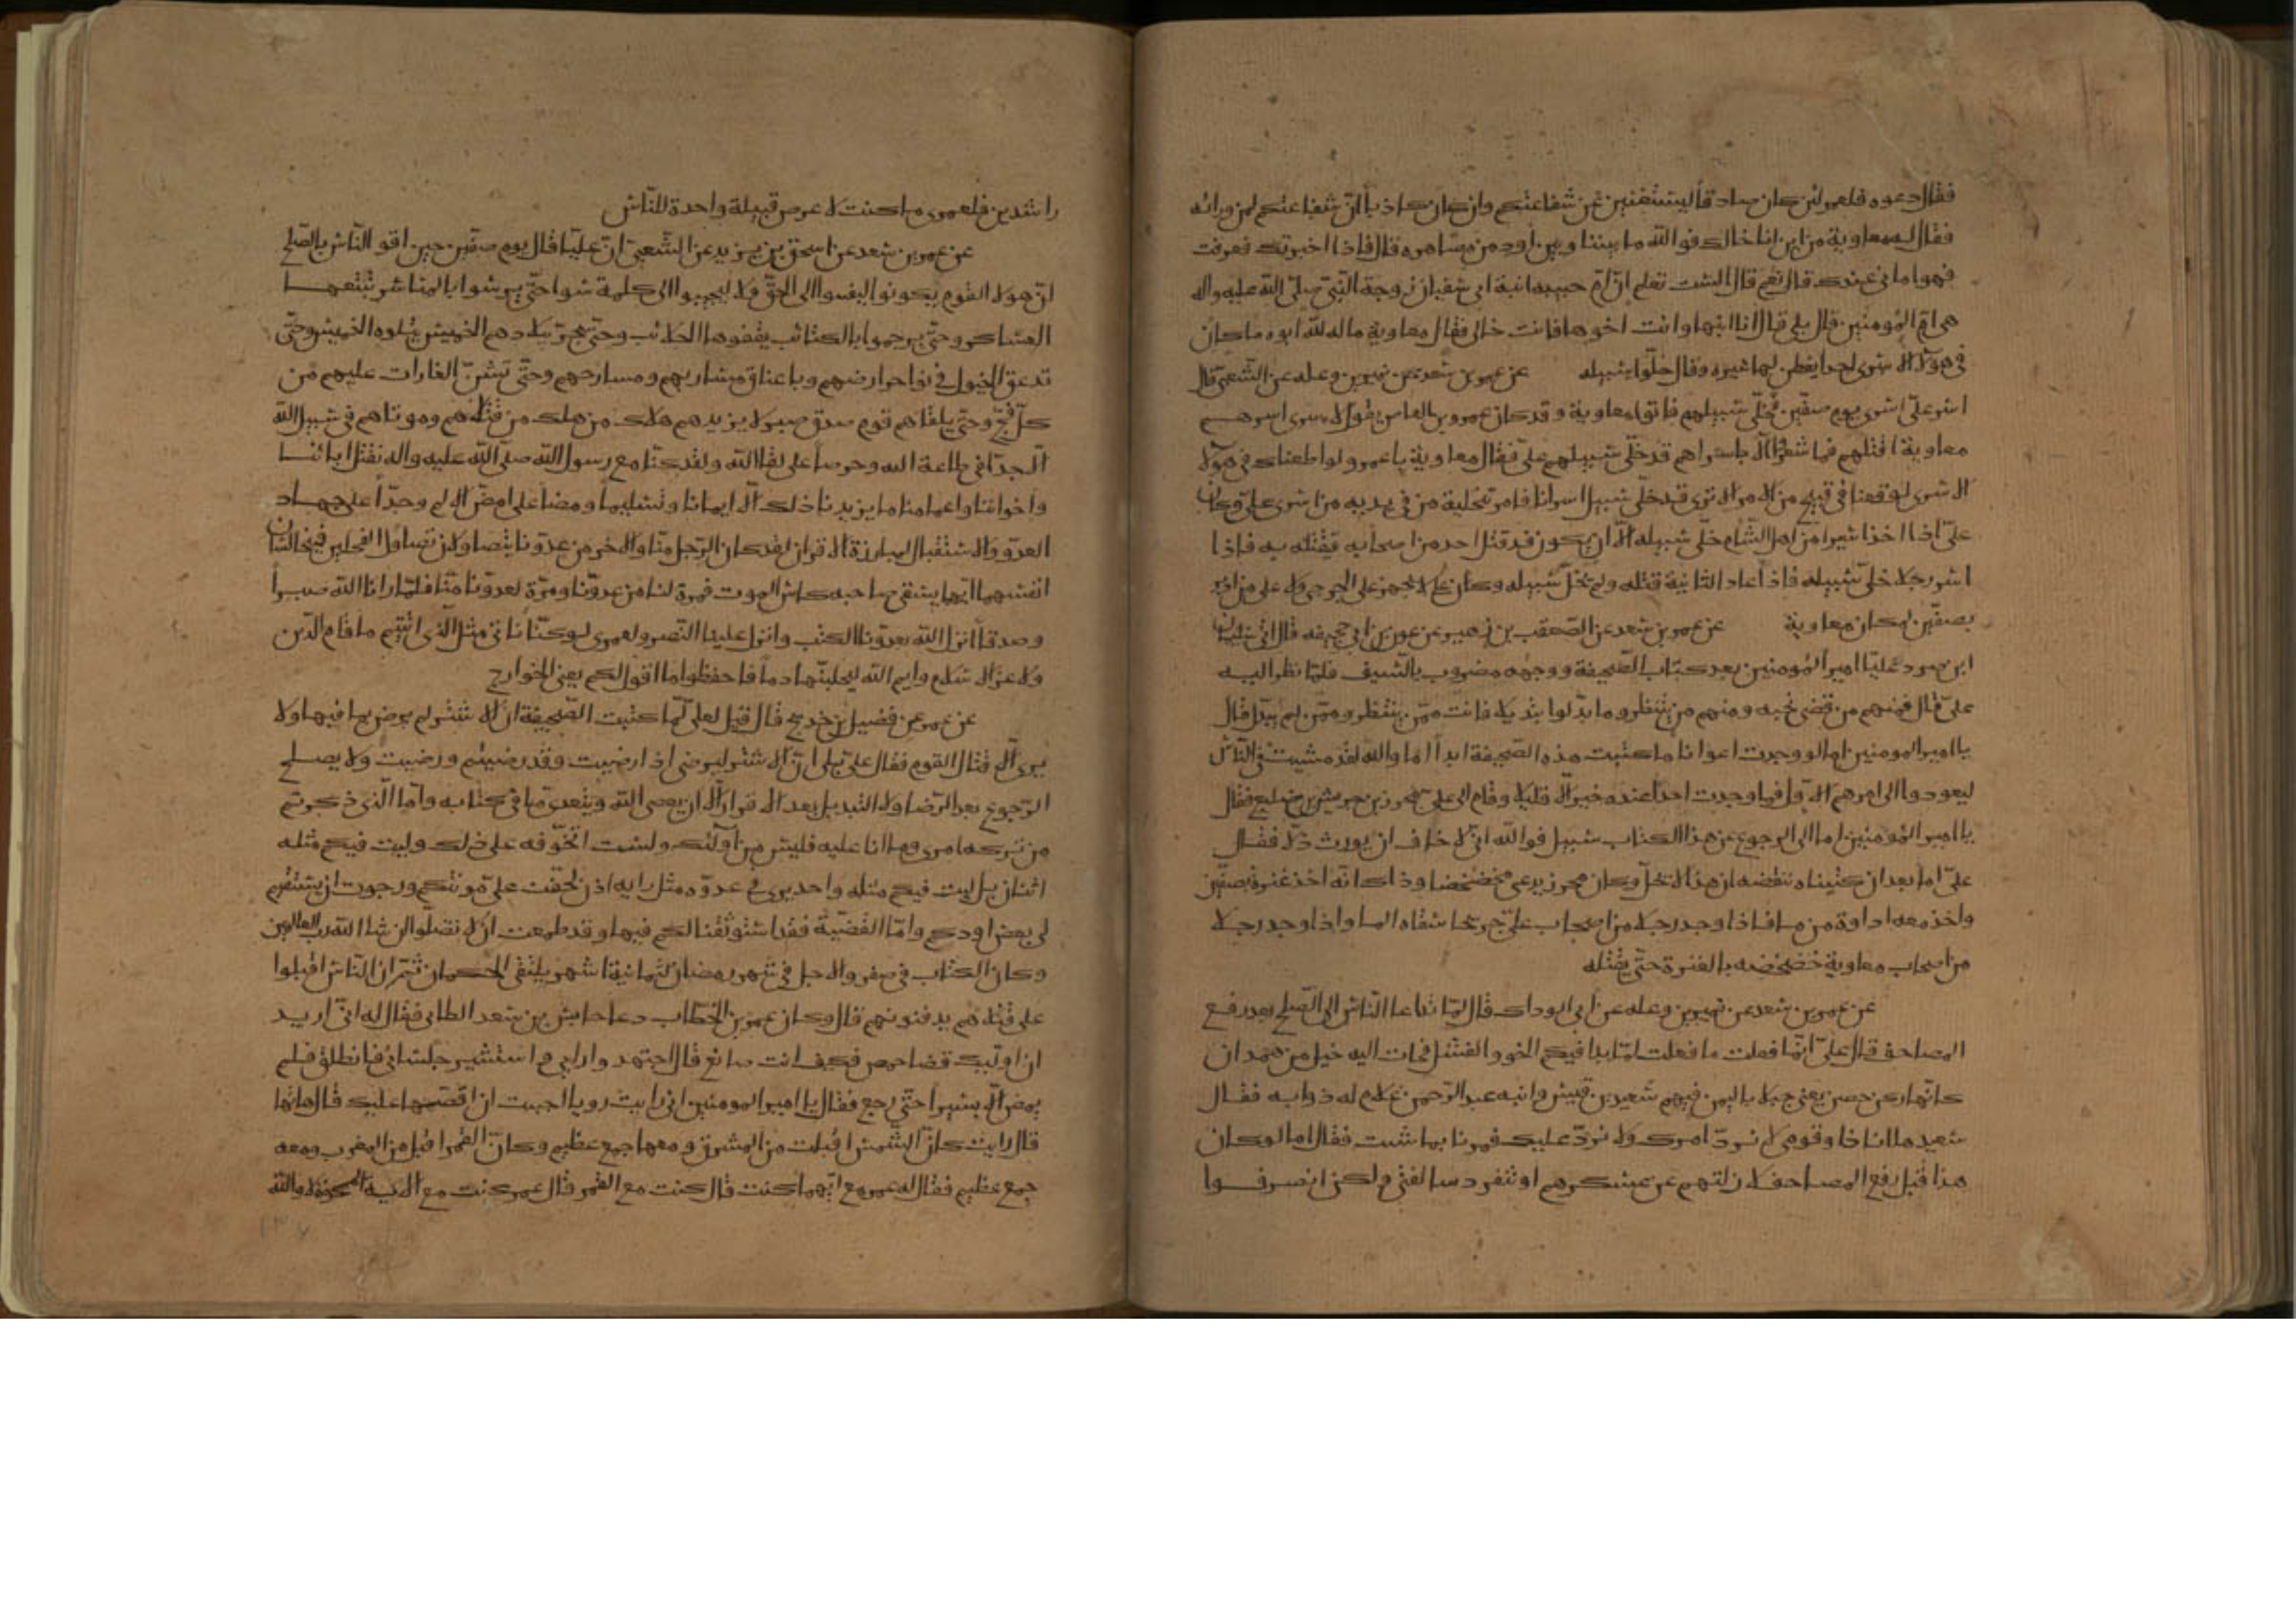 فقال دعوه فلعمري لئن كان صادقا ليستغنين عن شفاعتكم وان كان كاذبا ان شفاعتكم لمن ورائه
فقال له معاوية من اين انا خالك فوالله ما بيننا وبين اود من مصاهره قال فاذا اخبرتك فعرفت
فهو اماني عندك قال نعم قال الست تعلم ان ام حبيبه ابنة ابي سفيان زوجة النبي صلى الله عليه واله
هي ام المومنين قال بلى قال انا ابنها وانت اخوها فانت خالي فقال معاوية ما له لله ابوه ما كان
في هولا الاسرى احد يفطن لها غيره وقال خلوا سبيله عن عمر بن سعد عن نمير بن وعله عن الشعبي قال
اسر علي اسرى يوم صفين فخلى سبيلهم فاتوا معاوية وقد كان عمرو بن العاص يقول لاسرى اسرهم
معاوية اقتلهم فما شعروا الا باسراهم قد خلى سبيلهم علي فقال معاوية يا عمرو لو اطعناك في هولا
الاسرى لوقعنا في قبيح من الامر الا ترى قد خلى سبيل اسرانا فامر بتخلية من في يديه من اسرى علي وكان
علي اذا اخذ اسيرا من اهل الشام خلى سبيله الا ان يكون قد قتل احد من اصحابه فيقتله به فاذا
اسر رجلا خلى سبيله فاذا عاد الثانية قتله ولم يخل سبيله وكان علي لا يجهز على الجرحى ولا على من ادبر
بصفين لمكان معاوية عن عمر بن سعد عن الصقعب بن زهير عن عون بن ابي جحيفه قال اتى سليمان
ابن صرد عليا امير المومنين بعد كتاب الصحيفة ووجهه مضروب بالسيف فلما نظر اليه
علي قال فمنهم من قضى نحبه ومنهم من ينتظر وما بدلوا تبديلا فانت ممن ينتظر وممن لم يبدل فقال
يا امير المومنين اما لو وجدت اعوانا ما كتبت هذه الصحيفة ابدا اما والله لقد مشيت في الناس
ليعودوا الى امرهم الاول فما وجدت احدا عنده خير الا قليلا وقام الى علي محرز بن جريش بن ضليع فقال
يا امير المومنين اما الى الرجوع عن هذا الكتاب سبيل فوالله اني لاخاف ان يورث ذلا فقال
علي اما بعد ان كتبناه ننقضه ان هذا لا يحل وكان محرز يدعى مخضخضا وذاك انه اخذ عنزة بصفين
واخذ معه اداوة من ما فاذا وجد رجلا من اصحاب علي جريحا سقاه الما واذا وجد رجلا
من اصحاب معاوية خضخضه بالعنزة حتى يقتله
عن عمر بن سعد عن نمير بن وعله عن ابي الوداك قال لما تداعا الناس الى الصلح بعد رفع
المصاحف قال علي انما فعلت ما فعلت لما بدا فيكم الخور والفشل فجات اليه خيل من همدان
كانها ركن حصين يعني جبلا باليمن فيهم سعيد بن قيس وابنه عبد الرحمن غلام له ذوابه فقال
سعيد ها انا ذا وقومي لا نرد امرك ولا نرد عليك فمرنا بما شئت فقال اما لو كان
هذا قبل رفع المصاحف لازلتهم عن عسكرهم او تنفرد سالفتي ولكن انصرفوا
راشدين فلعمري ما كنت لاعرض قبيلة واحدة للناس
عن عمر بن سعد عن اسحق بن يزيد عن الشعبي ان عليا قال يوم صفين حين اقر الناس بالصلح
ان هولا القوم لم يكونوا ليفيوا الى الحق ولا ليجيبوا الى كلمة سوا حتى يرموا بالمناسر تتبعها
العساكر وحتى يرجموا بالكتائب يقفوها الحلائب وحتى يجر ببلادهم الخميس يتلوه الخميس وحتى
تدعق الخيول في نواحي ارضهم وباعنان مساربهم ومسارحهم وحتى تشن الغارات عليهم من
كل فج وحتى يلقاهم قوم صدق صبر لا يزيدهم هلاك من هلك من قتلاهم وموتاهم في سبيل الله
الا جدا في طاعة الله وحرصا على لقا الله ولقد كنا مع رسول الله صلى الله عليه واله نقتل ابائنا
واخواننا واعمامنا ما يزيدنا ذلك الا ايمانا وتسليما ومضا على امض الالم وجدا على جهاد
العدو والاستقبال لمبارزة الاقران لقد كان الرجل منا والاخر من عدونا يتصاولان تصاول الفحلين فيتخالسان
انفسهما ايهما يسقي صاحبه كاس الموت فمرة لنا من عدونا ومرة لعدونا منا فلما رانا الله صبرا
وصدقا انزل الله بعدونا الكبت وانزل علينا النصر ولعمري لو كنا ناتي مثل الذي اتيتم ما قام الدين
ولا عز الاسلام وايم الله لتحلبنها دما فاحفظوا ما اقول لكم يعني الخوارج
عن عمر عن فضيل بن خديج قال قيل لعلي لما كتبت الصحيفة ان الاشتر لم يرض بما فيها ولا
يرى الا قتال القوم فقال علي بلى ان الاشتر ليرضى اذا رضيت وقد رضيتم ورضيت ولا يصلح
الرجوع بعد الرضا ولا التبديل بعد الاقرار الا ان يعصى الله ويتعدى ما في كتابه واما الذي ذكرتم
من تركه امري وما انا عليه فليس من اولئك ولست اتخوفه على ذلك وليت فيكم مثله
اثنان بل ليت فيكم مثله واحد يرى في عدوه مثل رايه اذن لخفت علي موونتكم ورجوت ان يستقيم
لي بعض اودكم واما القضية فقد استوثقنا لكم فيها وقد طمعت ان لا تضلوا ان شا الله رب العالمين
وكان الكتاب في صفر والاجل في شهر رمضان لثمانية اشهر يلتقي الحكمان ثم ان الناس اقبلوا
على قتلاهم يدفنونهم قال وكان عمر بن الخطاب دعا حابس بن سعد الطائي فقال له اني اريد
ان اوليك قضا حمص فكيف انت صانع قال اجتهد رايي واستشير جلسائي فانطلق فلم
يمض الا يسيرا حتى رجع فقال يا امير المومنين اني رايت رويا احببت ان اقصها عليك قال هاتها
قال رايت كان الشمس اقبلت من المشرق ومعها جمع عظيم وكان القمر اقبل من المغرب ومعه
جمع عظيم فقال له عمر مع ايهما كنت قال كنت مع القمر قال عمر كنت مع الاية الممحوة لا والله